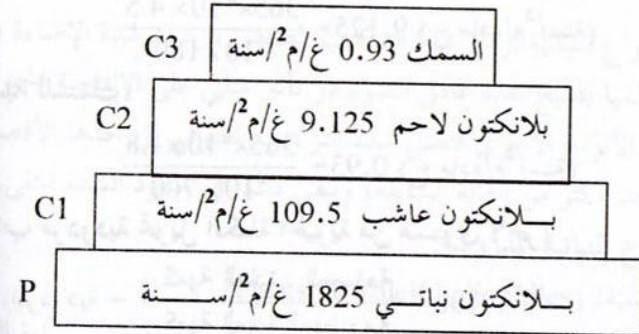 C3 السمك 0.93 غ/م²/سنة
C2 بلانكتون لاحم 9.125 غ/م²/سنة
C1 بـــلانكتون عاشب 109.5 غ/م²/سنة
P بـــلانكتون نباتـــي 1825 غ/م²/ســـــنة